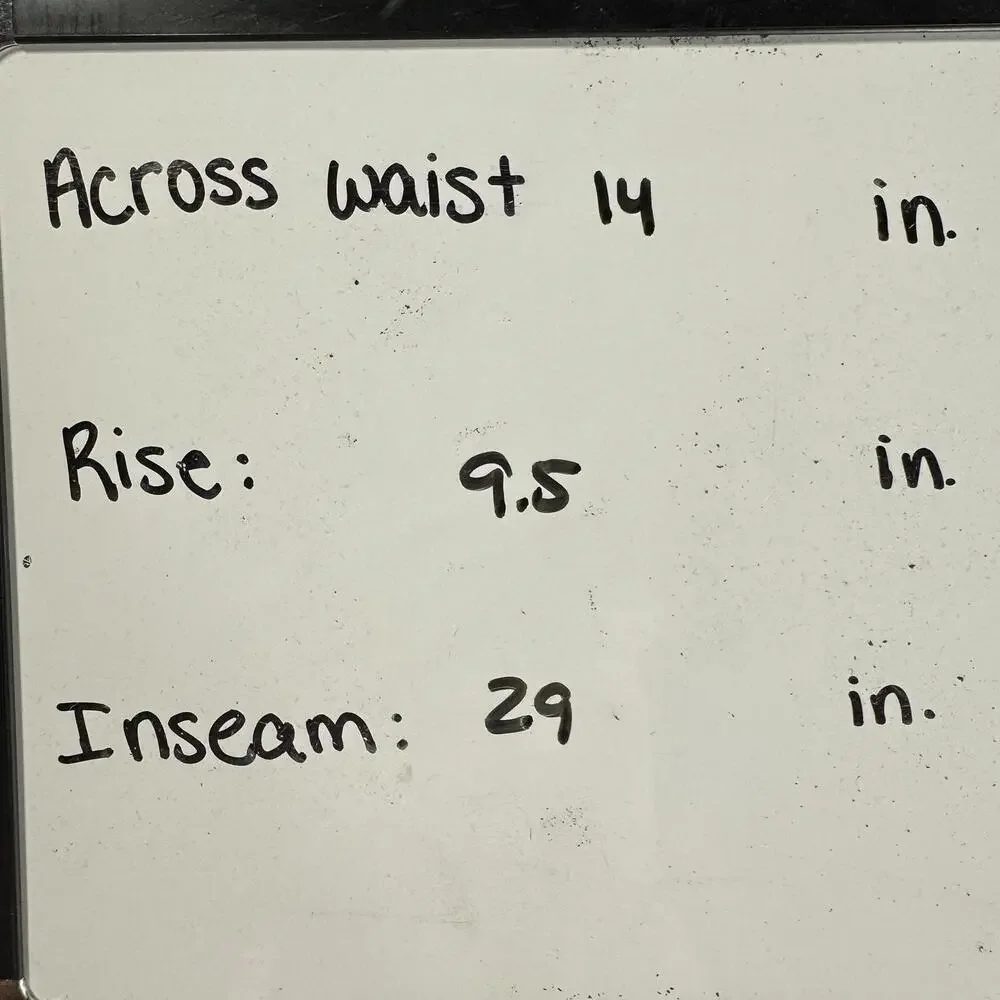 Across waist 14 in.
Rise: 9.5 in.
Inseam: 29 in.